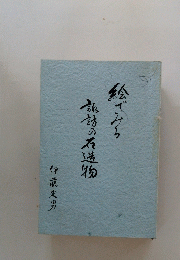 絵でみる
諏訪の石造物
伊藤文男